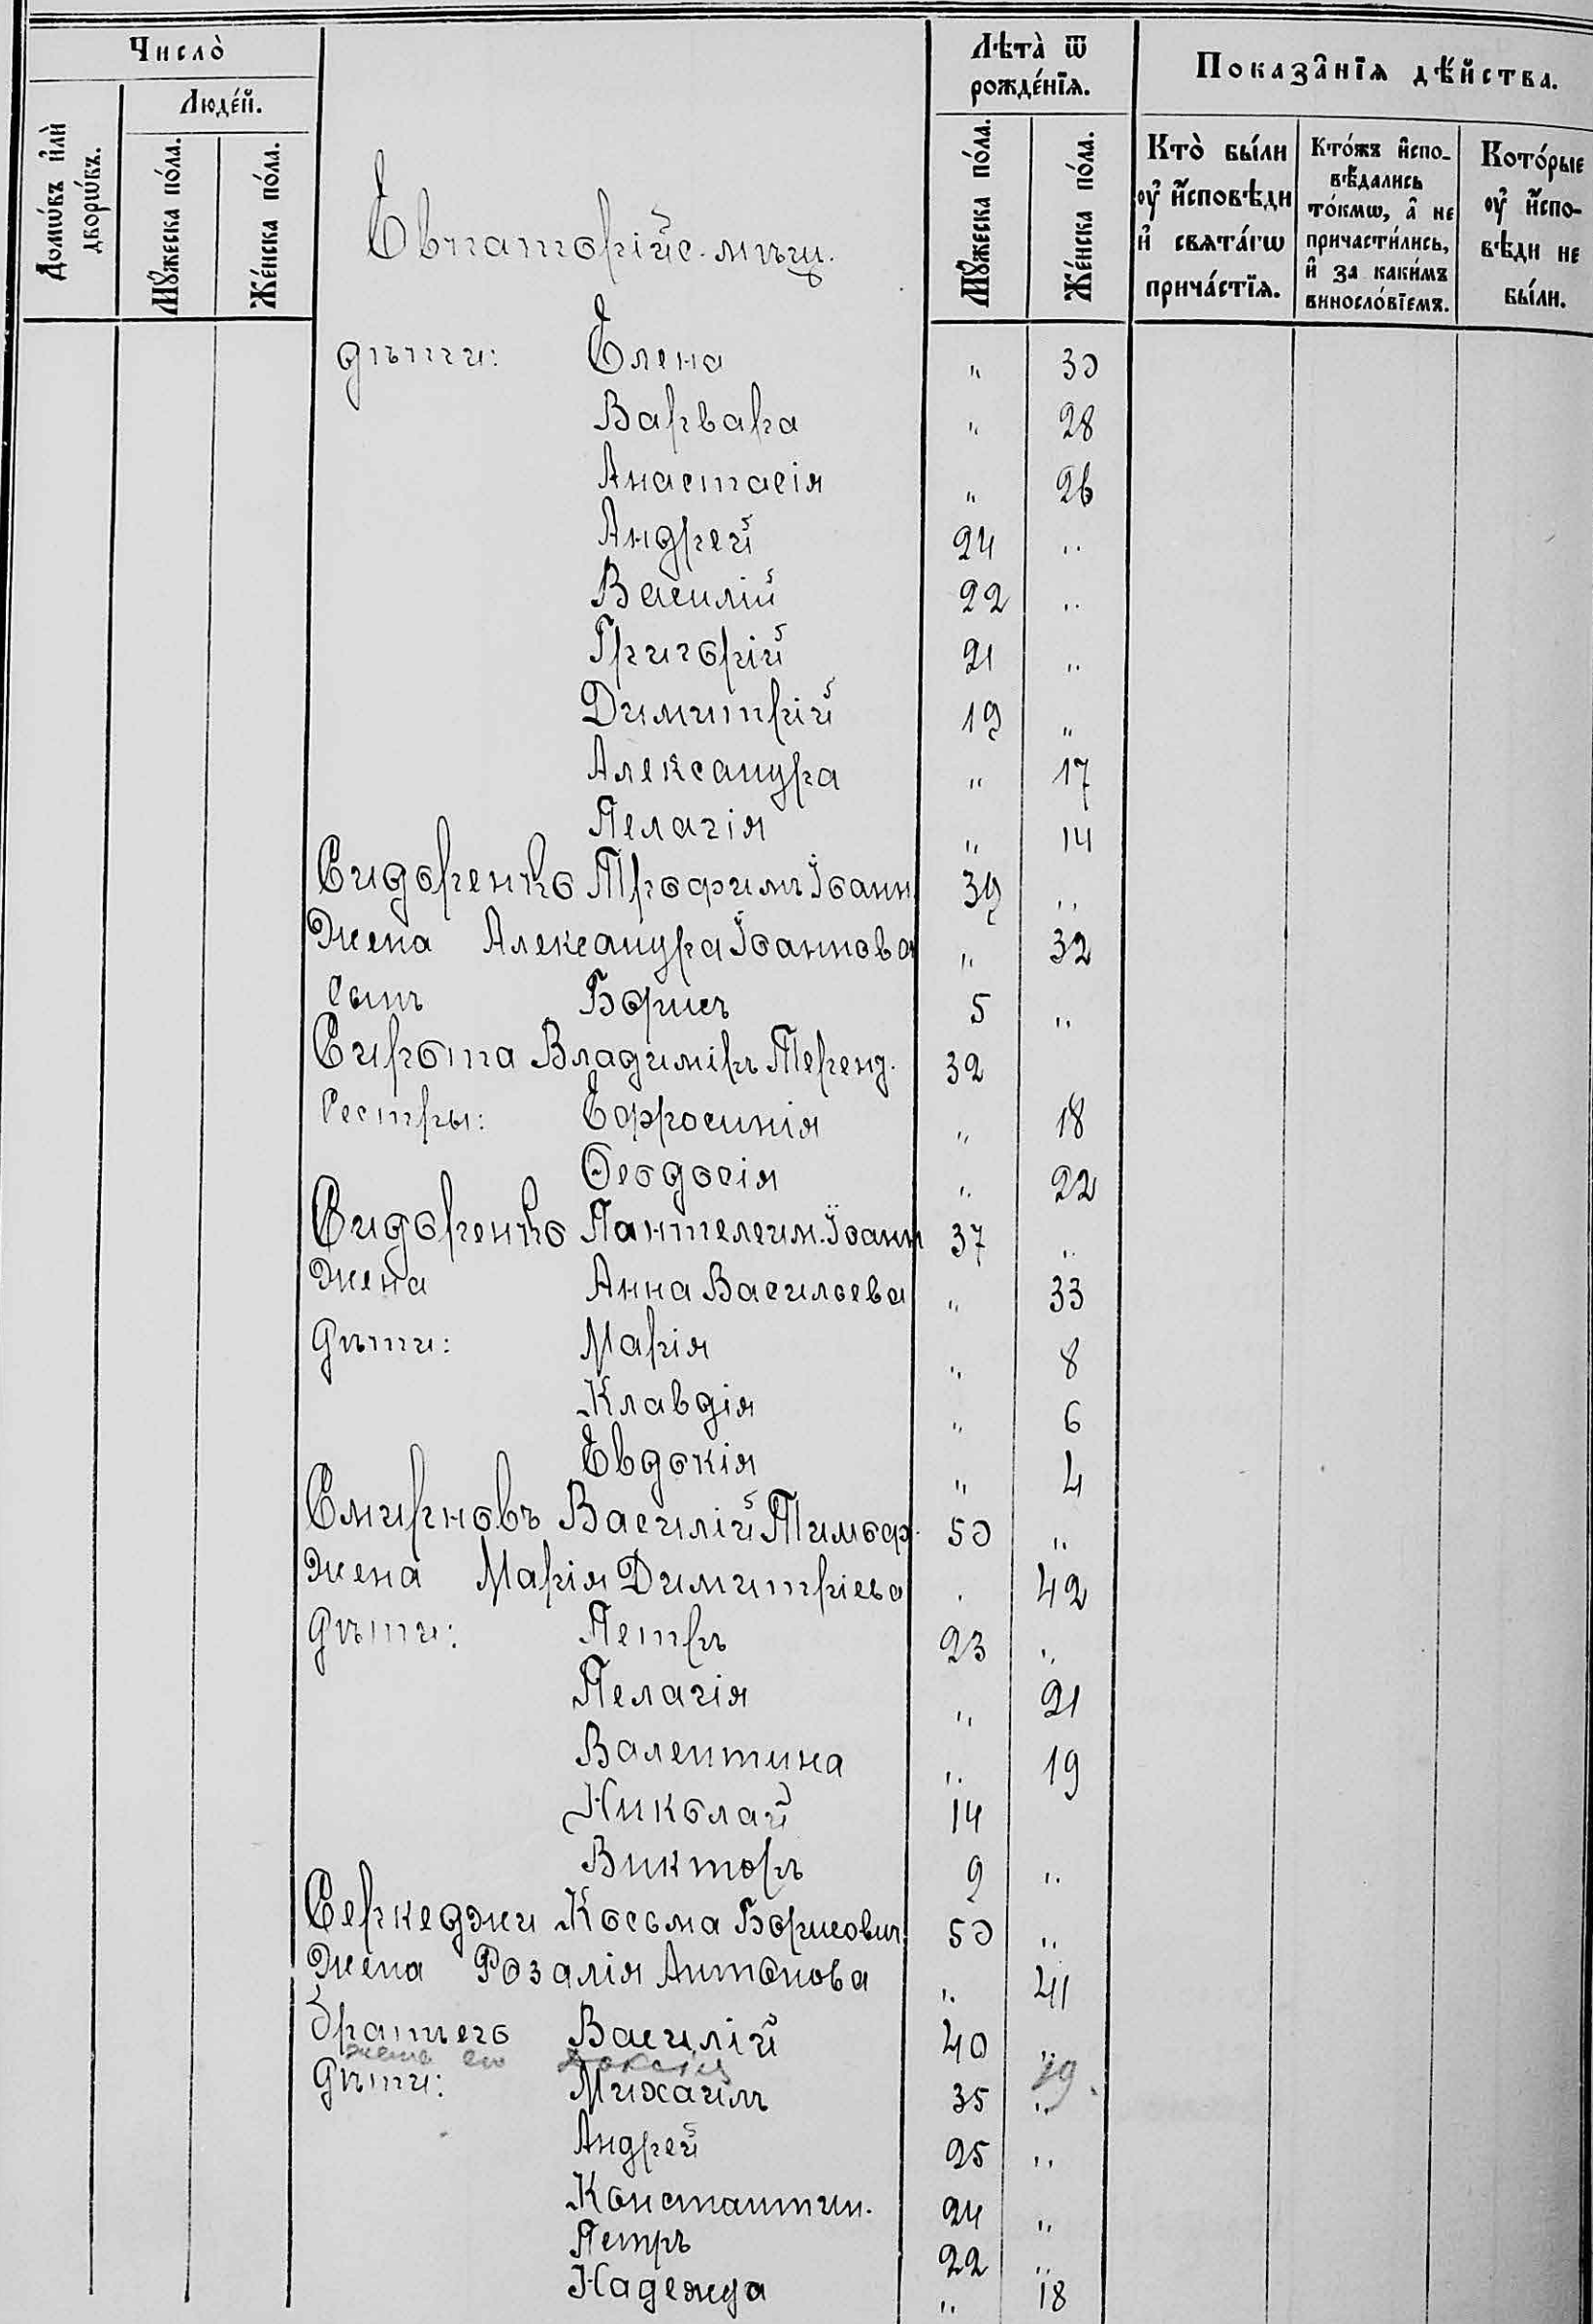 Число̀
Лѣта̀ ѿ рожде́нїѧ.
Показа̑нїѧ дѣ́йства.
Домѡ́въ и҆лѝ дворѡ́въ.
Люде́й.
Мꙋ́жеска по́ла.
Же́нска по́ла.
Мꙋ́жеска по́ла.
Же́нска по́ла.
Кто̀ бы́ли ᲂу҆ и҆́сповѣди и҆ свята́гѡ прича́стїѧ.
Кто́жъ и҆спо-вѣ́дались то́кмѡ, а҆ не причасти́лись, и҆ за каки́мъ виносло́вїемъ.
Кото́рые ᲂу҆ и҆́спо-вѣди не бы́ли.
Евпаторійс. мѣщ.
дѣти: Елена " 30
Варвара " 28
Анастасія " 26
Андрей 24 "
Василій 22 "
Григорій 21 "
Димитрій 19 "
Александра " 17
Пелагія " 14
Сидоренко Трофимъ Іоанн. 39 "
Жена Александра Іоаннова " 32
Сынъ Борисъ 5 "
Сирота Владиміръ Терент. 32
Сестры: Ефросинія " 18
Ѳеодосія " 22
Сидоренко Пантелеим. Іоанн 37 "
Жена Анна Васильева " 33
Дѣти: Марія " 8
Клавдія " 6
Евдокія " 4
Смирновъ Василій Тимоф. 50 "
Жена Марія Димитріева " 42
Дѣти: Петръ 23 "
Пелагія " 21
Валентина " 19
Николай 14
Викторъ 9 "
Серкеджи Косьма Борисович. 50 "
Жена Розалія Антонова " 41
Братъ его Василій 40 "
жена его 39
Дѣти: Михаилъ 35 "
Андрей 25 "
Константин. 24 "
Петръ 22 "
Надежда " 18